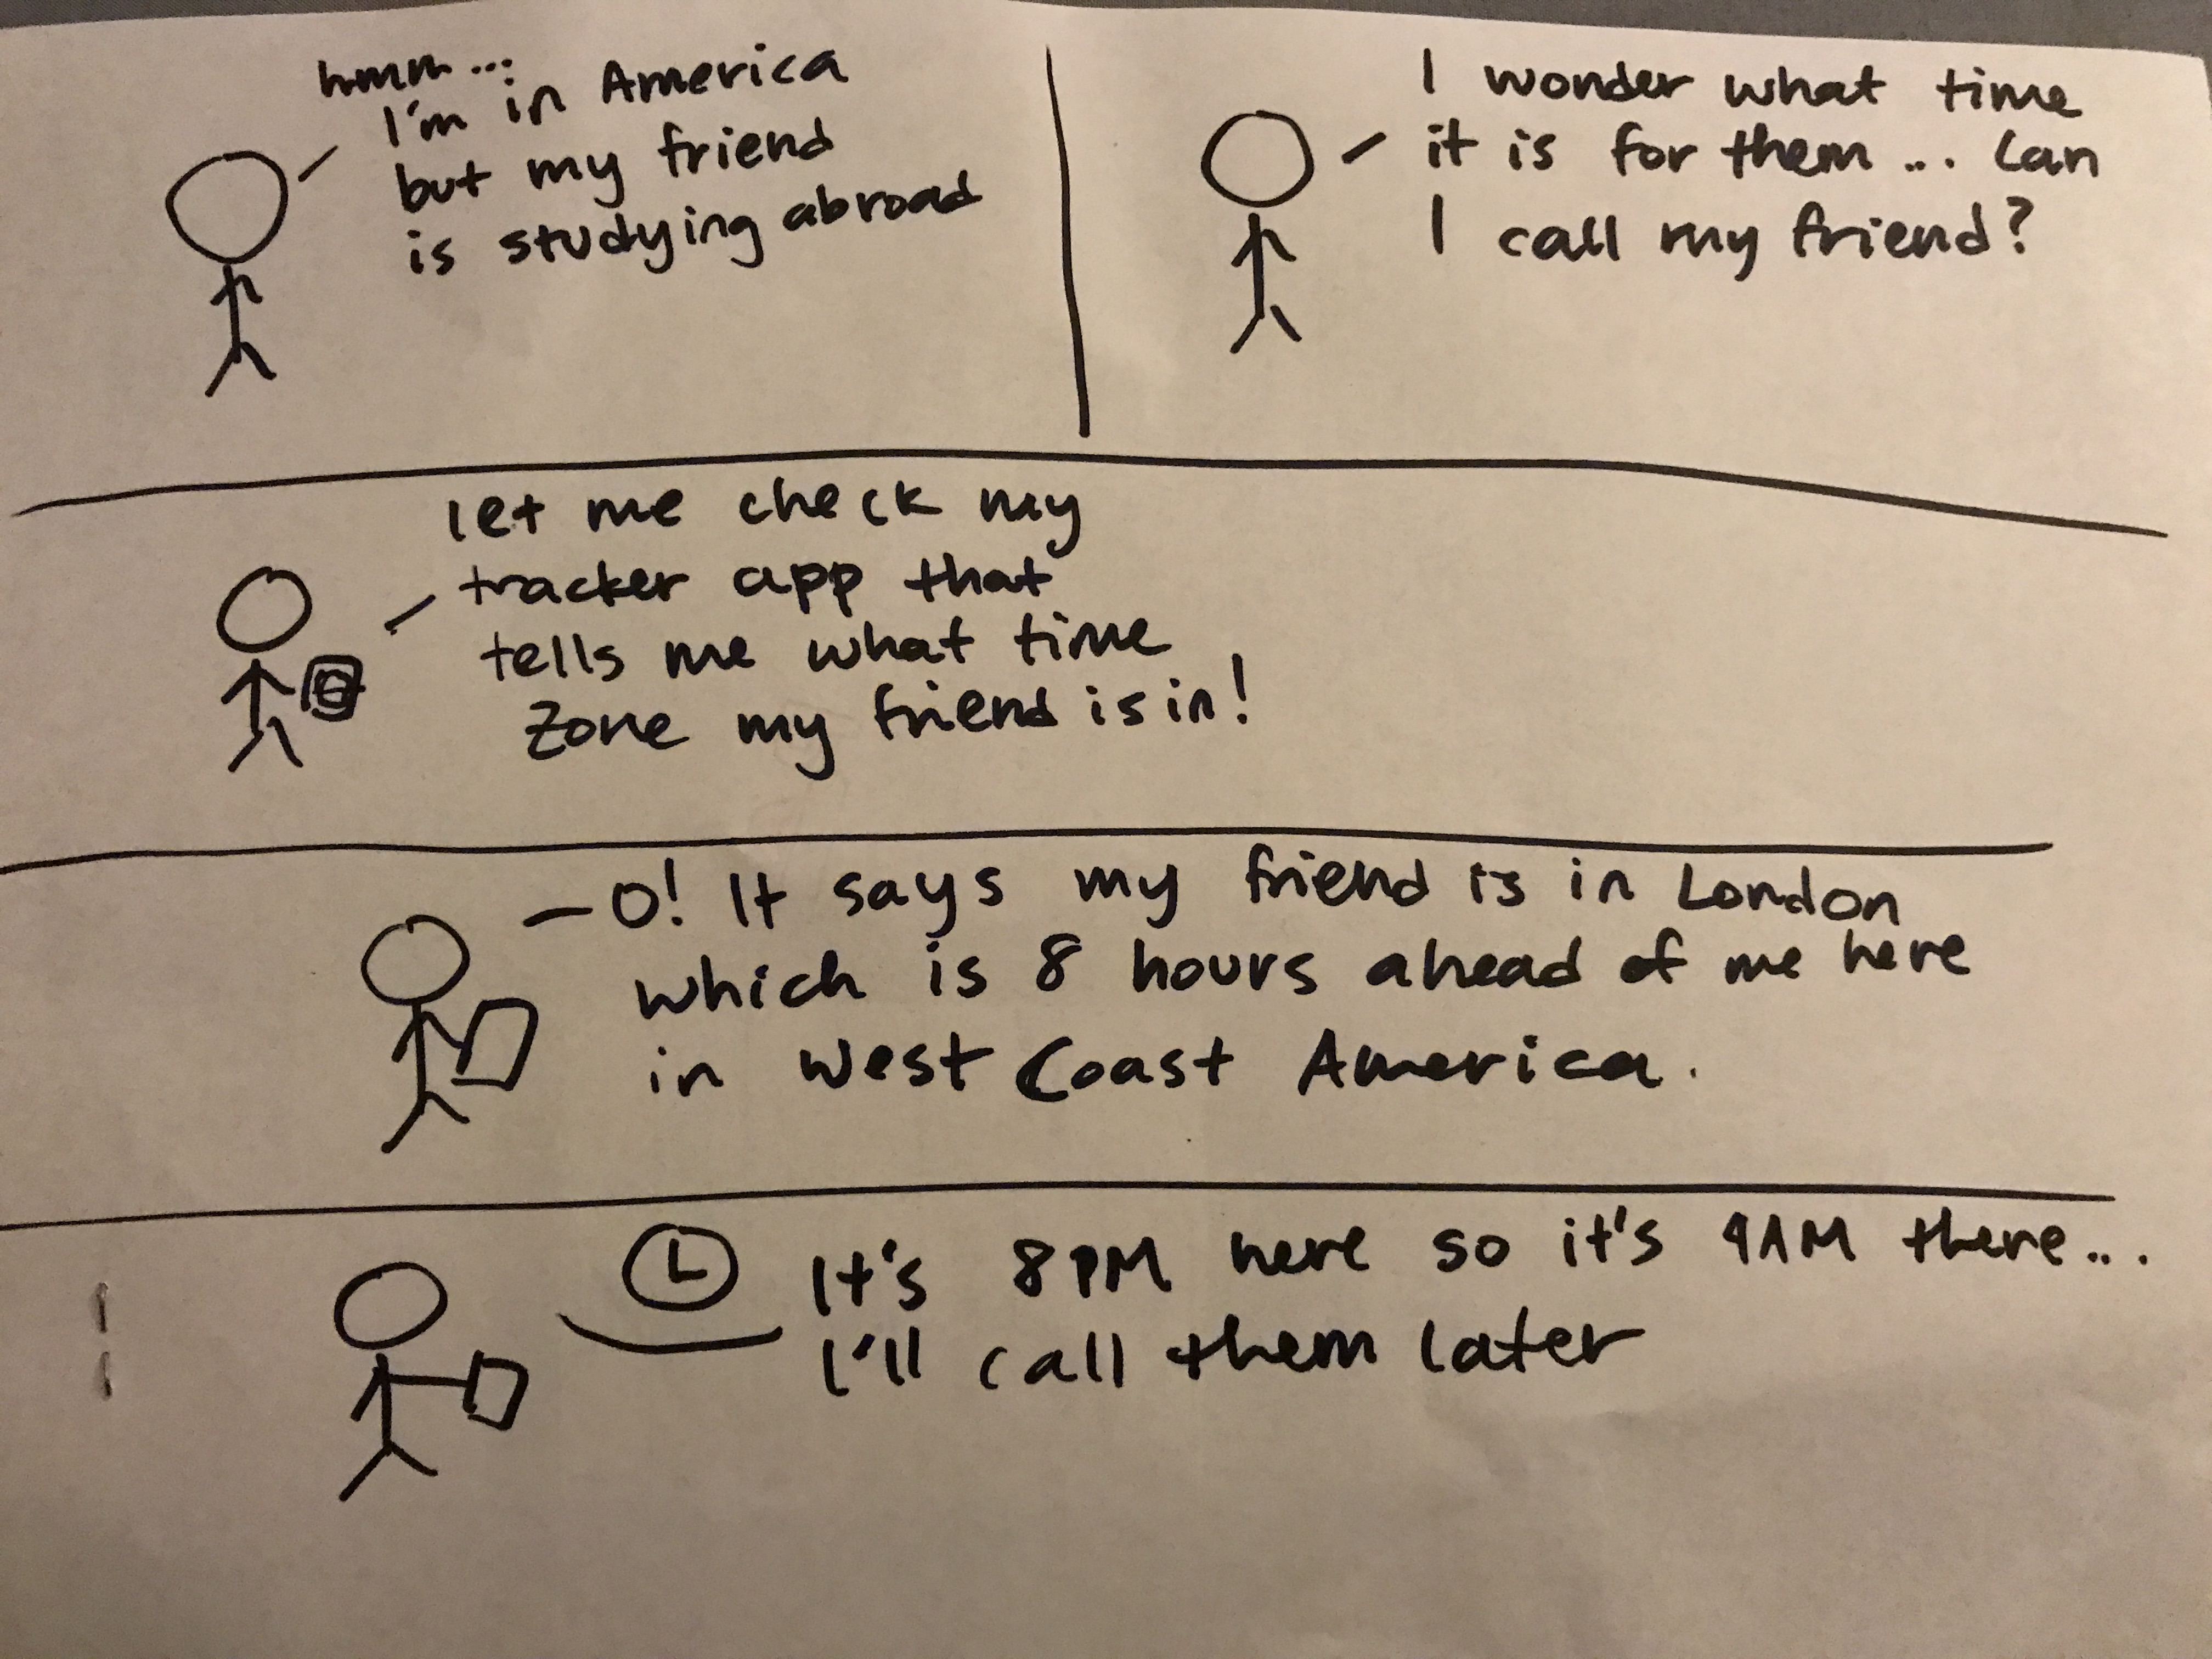 hmm...
I'm in America
but my friend
is studying abroad
I wonder what time
it is for them... Can
I call my friend?
let me check my
tracker app that
tells me what time
zone my friend is in!
O! It says my friend is in London
which is 8 hours ahead of me here
in West Coast America.
It's 8PM here so it's 4AM there...
I'll call them later